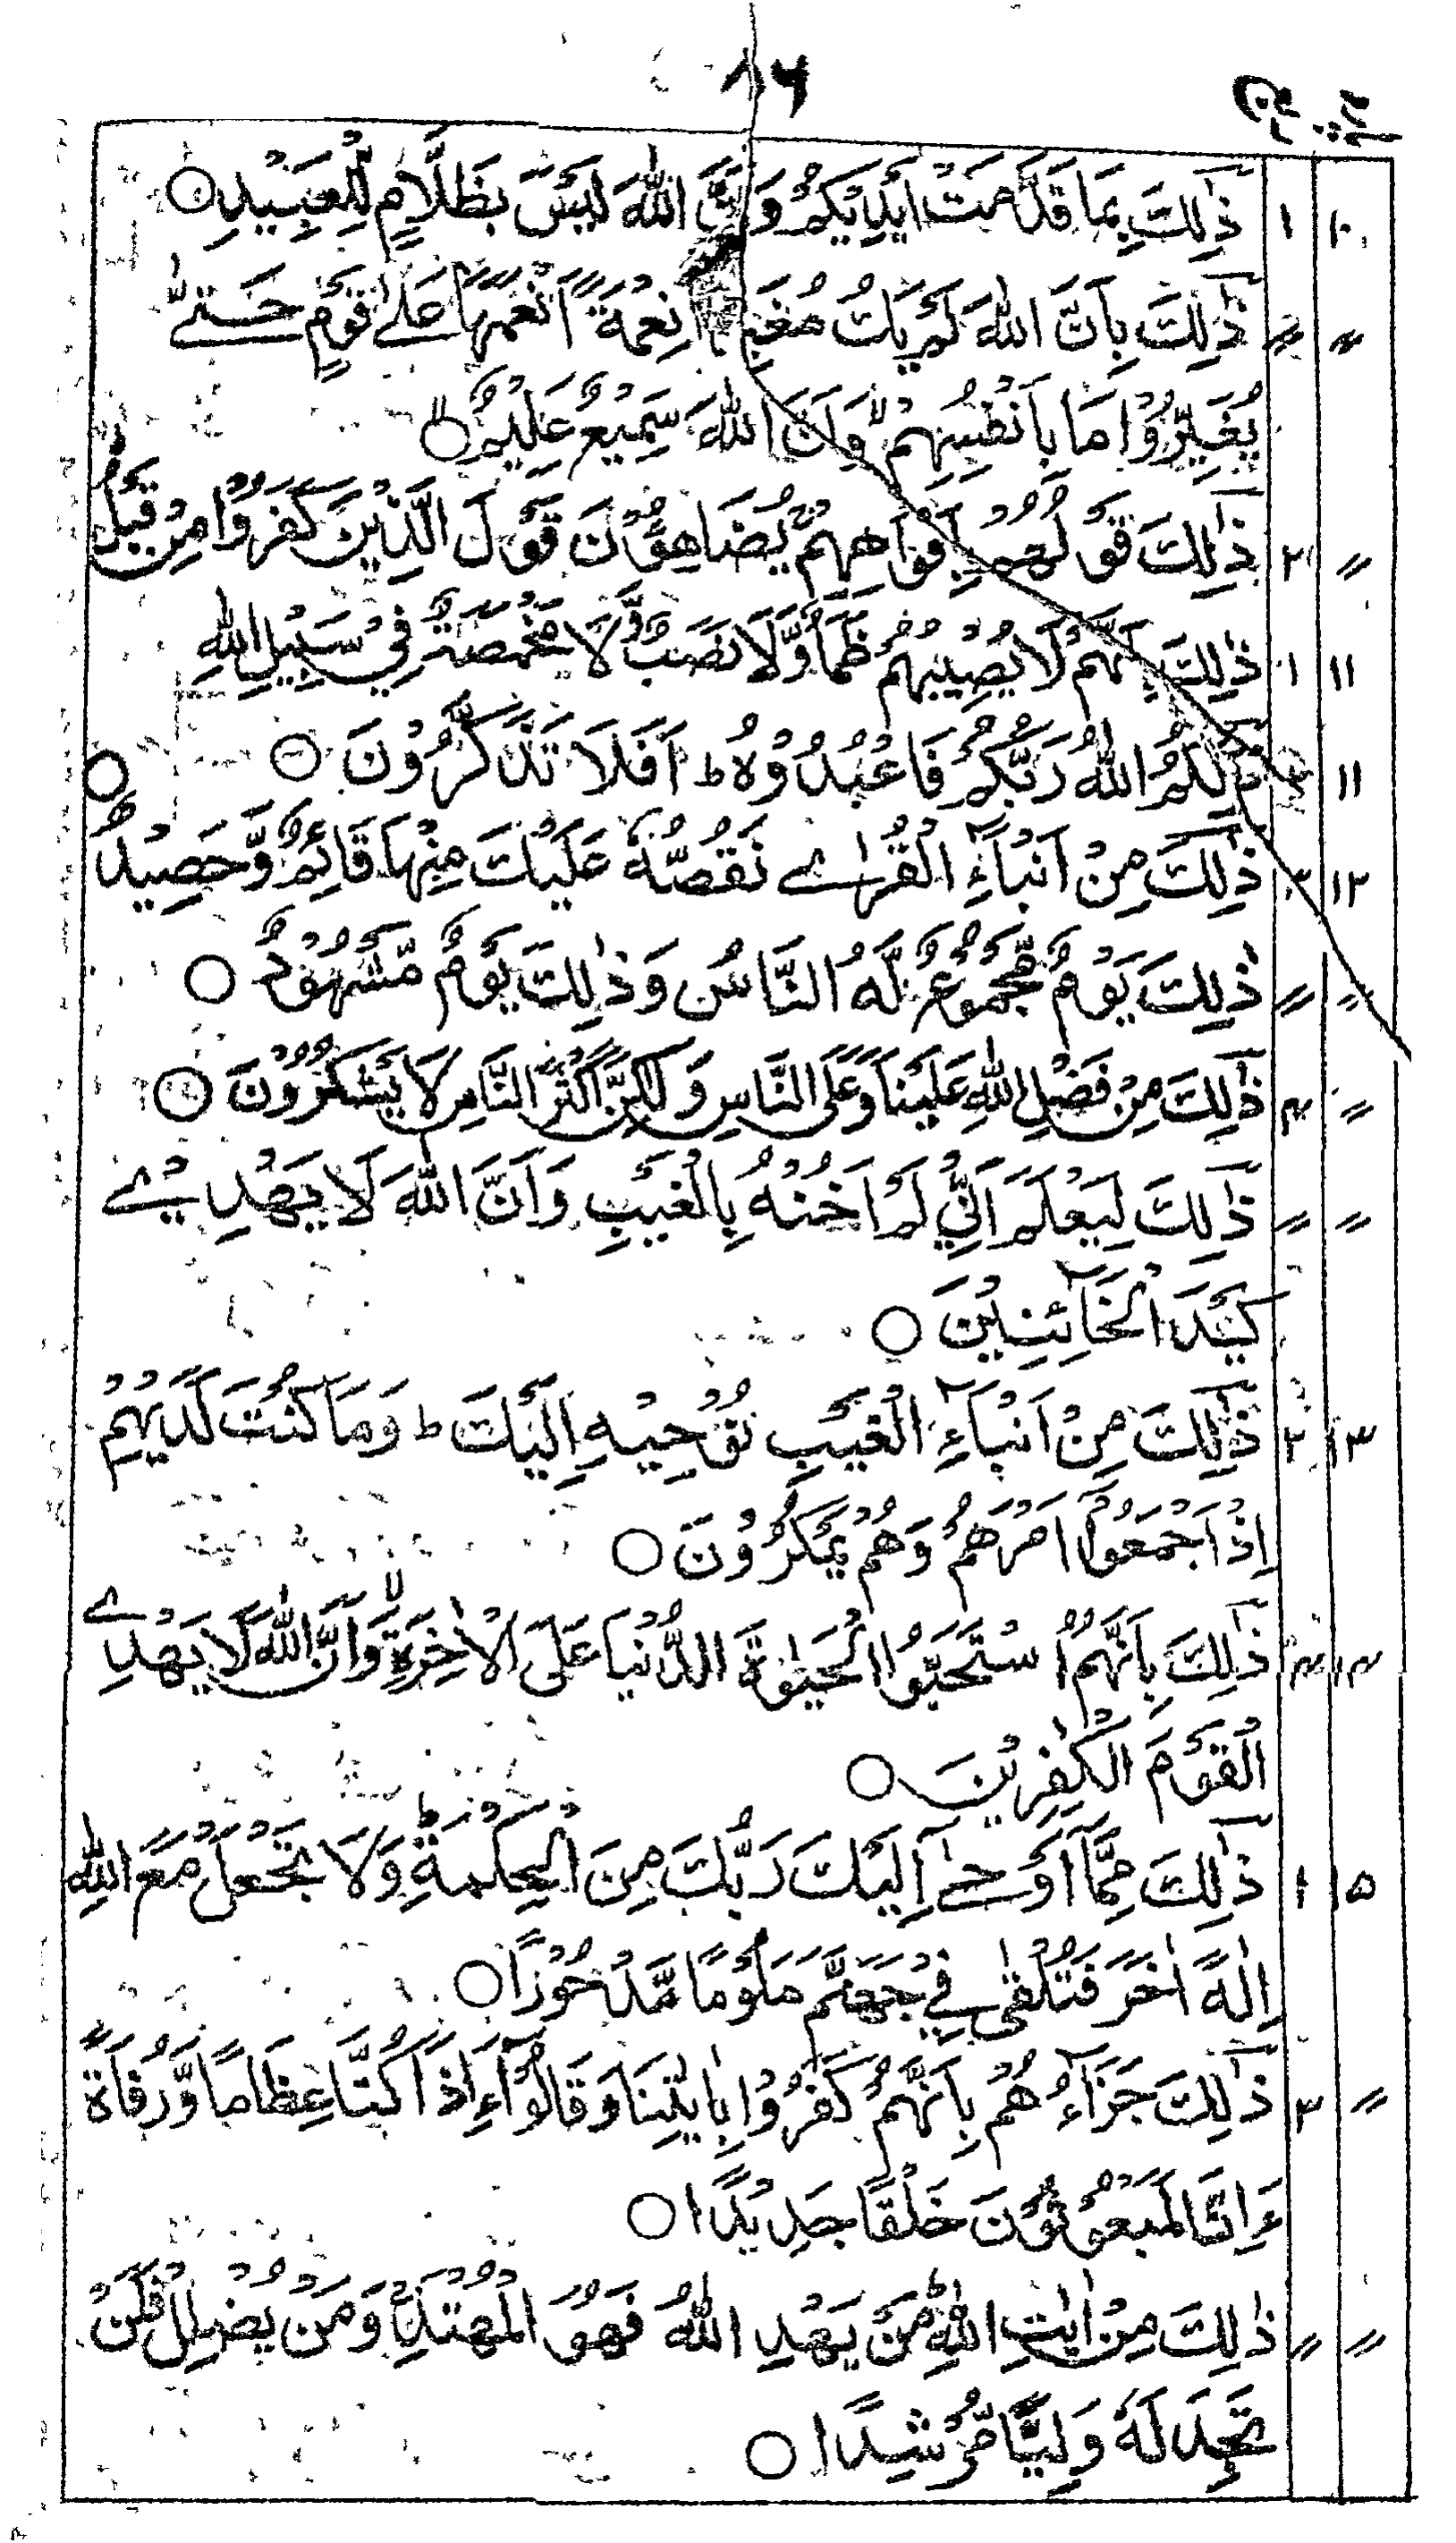 ۸۶
۱۰ ۱ ذٰلِكَ بِمَا قَدَّمَتْ اَيْدِيْكُمْ وَاَنَّ اللّٰهَ لَيْسَ بِظَلَّامٍ لِّلْعَبِيْدِ ○
〃 〃 ذٰلِكَ بِاَنَّ اللّٰهَ لَمْ يَكُ نِعْمَةً اَنْعَمَهَا عَلٰے قَوْمٍ حَتّٰے
يُغَيِّرُوْا مَا بِاَنْفُسِهِمْ ۙ وَاَنَّ اللّٰهَ سَمِيْعٌ عَلِيْمٌ ○
〃 ۲ ذٰلِكَ قَوْلُهُمْ بِاَفْوَاهِهِمْ يُضَاهِؤُنَ قَوْلَ الَّذِيْنَ كَفَرُوْا مِنْ قَبْلُ
۱۱ ۱ ذٰلِكَ بِاَنَّهُمْ لَا يُصِيْبُهُمْ ظَمَاٌ وَّلَا نَصَبٌ وَّلَا مَخْمَصَةٌ فِيْ سَبِيْلِ اللّٰهِ
۱۱ ذٰلِكُمُ اللّٰهُ رَبُّكُمْ فَاعْبُدُوْهُ ط اَفَلَا تَذَكَّرُوْنَ ○
۱۲ ۳ ذٰلِكَ مِنْ اَنْبَآءِ الْقُرٰے نَقُصُّهٗ عَلَيْكَ مِنْهَا قَائِمٌ وَّحَصِيْدٌ ○
〃 〃 ذٰلِكَ يَوْمٌ مَّجْمُوْعٌ لَّهُ النَّاسُ وَذٰلِكَ يَوْمٌ مَّشْهُوْدٌ ○
〃 ۴ ذٰلِكَ مِنْ فَضْلِ اللّٰهِ عَلَيْنَا وَعَلَى النَّاسِ وَلٰكِنَّ اَكْثَرَ النَّاسِ لَا يَشْكُرُوْنَ ○
〃 〃 ذٰلِكَ لِيَعْلَمَ اَنِّيْ لَمْ اَخُنْهُ بِالْغَيْبِ وَاَنَّ اللّٰهَ لَا يَهْدِيْ
كَيْدَ الْخَآئِنِيْنَ ○
۱۳ ۲ ذٰلِكَ مِنْ اَنْبَآءِ الْغَيْبِ نُوْحِيْهِ اِلَيْكَ ط وَمَا كُنْتَ لَدَيْهِمْ
اِذْ اَجْمَعُوْا اَمْرَهُمْ وَهُمْ يَمْكُرُوْنَ ○
۱۴ ۴ ذٰلِكَ بِاَنَّهُمُ اسْتَحَبُّوا الْحَيٰوةَ الدُّنْيَا عَلَى الْاٰخِرَةِ ۙ وَاَنَّ اللّٰهَ لَا يَهْدِے
الْقَوْمَ الْكٰفِرِيْنَ ○
۱۵ ۱ ذٰلِكَ مِمَّآ اَوْحٰےٓ اِلَيْكَ رَبُّكَ مِنَ الْحِكْمَةِ ط وَلَا تَجْعَلْ مَعَ اللّٰهِ
اِلٰهًا اٰخَرَ فَتُلْقٰى فِيْ جَهَنَّمَ مَلُوْمًا مَّدْحُوْرًا ○
〃 ۳ ذٰلِكَ جَزَآءُهُمْ بِاَنَّهُمْ كَفَرُوْا بِاٰيٰتِنَا وَقَالُوْٓا ءَاِذَا كُنَّا عِظَامًا وَّرُفَاةً
ءَاِنَّا لَمَبْعُوْثُوْنَ خَلْقًا جَدِيْدًا ○
〃 〃 ذٰلِكَ مِنْ اٰيٰتِ اللّٰهِ ط مَنْ يَهْدِ اللّٰهُ فَهُوَ الْمُهْتَدِ وَمَنْ يُضْلِلْ فَلَنْ
تَجِدَ لَهٗ وَلِيًّا مُّرْشِدًا ○